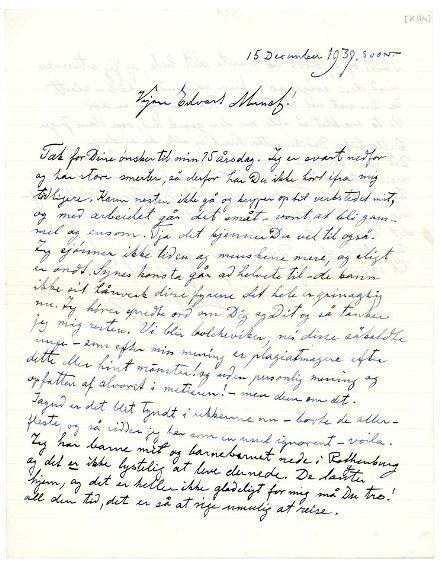 [K 1144]
15 December 1939. Soon.
Kjære Edvart Munch!
Tak for Dine ønsker til min 75 årsdag. Jeg er svært nedfor
og har store smerter, så derfor har Du ikke hørt ifra mig
tidligere. Kann nesten ikke gå og krypper op til verkstedet mit,
og med arbeidet går det småt – vont at bli gam-
mel og ensom. Tja det kjenner Du vel til også.
Jeg sjønner ikke tiden og menskene mere, og alt
er ondt. Synes konsten går ad helvete til – de kann
ikke sit håndverk disse fyrene det hele er
nu. Jeg hører spredte ord om Dig og Dit og så tænker
jeg mig resten. Vi blir bolsheviker, nei disse såkaldte
unge – som efter min mening er plagiatmagere efter
dette eller hint mønster, og uden personlig mening og
opfatten af alvoret i metieren! – men dem om det.
Jagud er det blet tyndt i rekkerne nu – borte de aller-
fleste, og så sidder jeg her som en usul ignorent – voila.
Jeg har barne mit og barnebarnet nede i Rothenburg
og det er ikke lystelig at leve dernede. De lengter
hjem, og det er heller ikke gladeligt for mig må Du tro!
all den tid, det er så at sige umulig at reise.